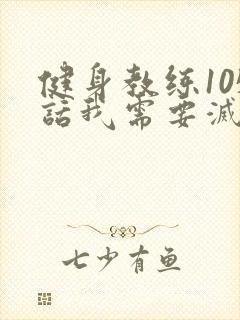 健身教练10
話我需要减
七少有鱼